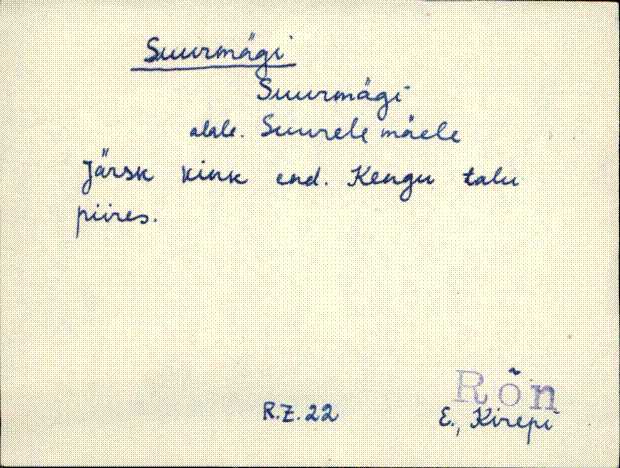 Suurmägi
Suurmägi
alale. Suurele mäele
Järsk kink end. Kengu talu
piires.
Rõn
R.Z.22
E., Kirepi